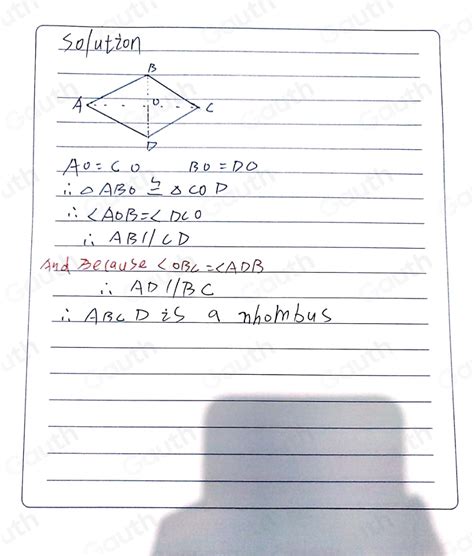 Solution
B
A O C
D
AO = CO BO = DO
∴ △ABO ≅ △COD
∴ ∠AOB = ∠DCO
∴ AB // CD
And Because ∠OBC = ∠ADB
∴ AD // BC
∴ ABCD is a rhombus
Gauth